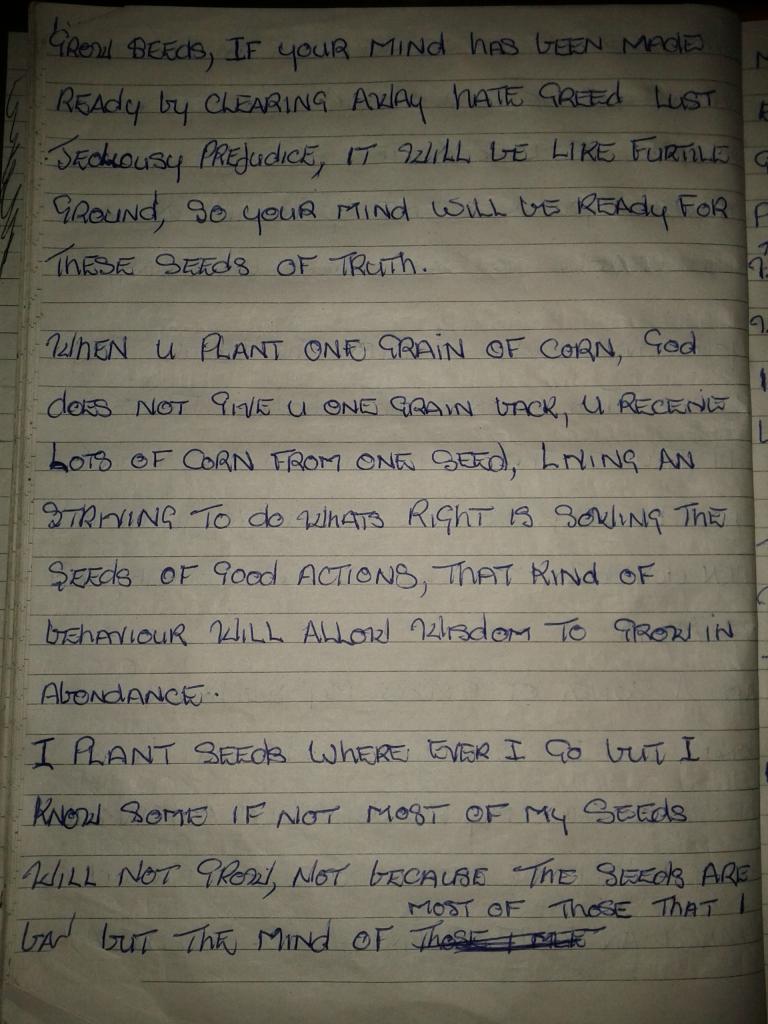 GROW SEEDS, IF YOUR MIND HAS BEEN MADE
READY BY CLEARING AWAY HATE GREED LUST
JEOLOUSY PREJUDICE, IT WILL BE LIKE FURTILE
GROUND, SO YOUR MIND WILL BE READY FOR
THESE SEEDS OF TRUTH.
WHEN U PLANT ONE GRAIN OF CORN, GOD
DOES NOT GIVE U ONE GRAIN BACK, U RECEIVE
LOTS OF CORN FROM ONE SEED, LIVING AN
STRIVING TO DO WHATS RIGHT IS SOWING THE
SEEDS OF GOOD ACTIONS, THAT KIND OF
BEHAVIOUR WILL ALLOW WISDOM TO GROW IN
ABONDANCE.
I PLANT SEEDS WHERE EVER I GO BUT I
KNOW SOME IF NOT MOST OF MY SEEDS
WILL NOT GROW, NOT BECAUSE THE SEEDS ARE
MOST OF THOSE THAT I
BAD BUT THE MIND OF THOSE I MEET